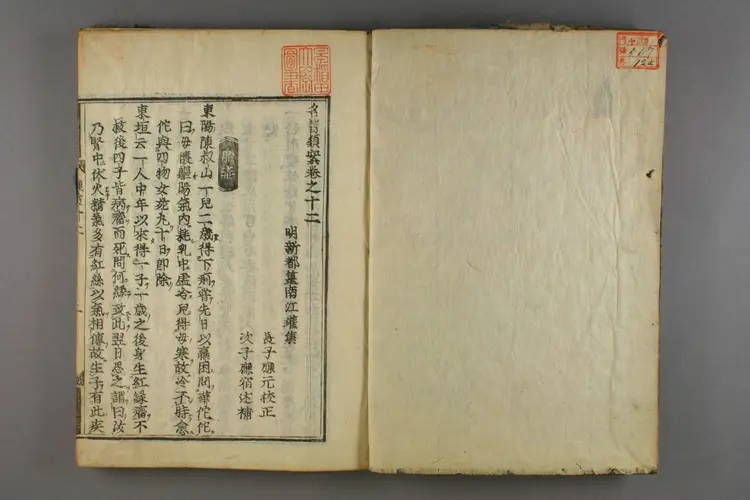 名醫類案卷之十二
明新都篁南江瓘集
長子應元校正
次子應宿述補
胎毒
東陽陳叔山一兒二歲得下利常先日以羸困問華佗佗
曰母懷軀陽氣內養乳中虛冷兒得母寒故冷不時愈
佗與四物女菀丸十日即除
東垣云一人中年以來得一子一歲之後身生紅絲瘤不
救後四子皆病瘤而死問何緣致此翌日思之謂曰汝
乃腎中伏火精氣多有紅絲以氣相傳故生子有此疾
早稲田大學圖書